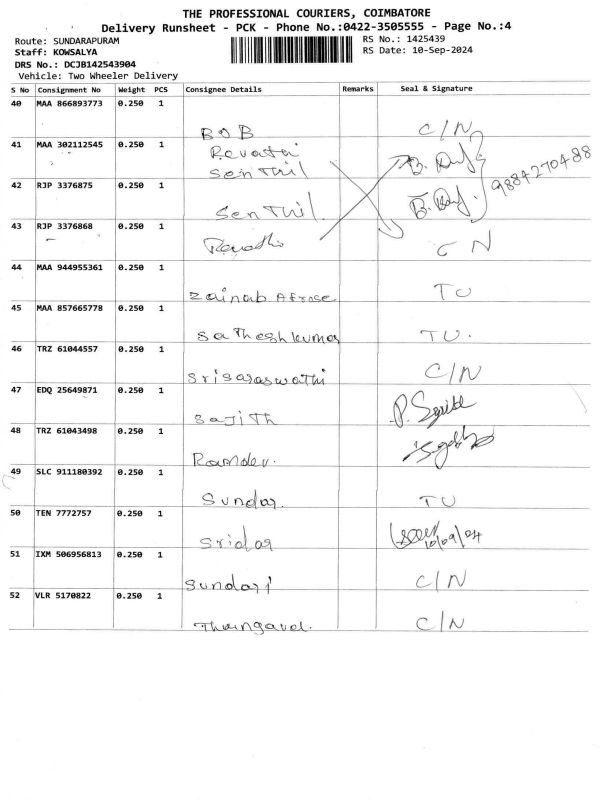 THE PROFESSIONAL COURIERS, COIMBATORE
Delivery Runsheet - PCK - Phone No.:0422-3505555 - Page No.:4
Route: SUNDARAPURAM
RS No.: 1425439
Staff: KOWSALYA
RS Date: 10-Sep-2024
DRS No.: DCJB142543904
Vehicle: Two Wheeler Delivery
S No Consignment No Weight PCS Consignee Details Remarks Seal & Signature
40 MAA 866893773 0.250 1
BOB C/N
41 MAA 302112545 0.250 1
Revathi
Senthil
42 RJP 3376875 0.250 1
9884270488
Senthil.
43 RJP 3376868 0.250 1
Revathi CN
44 MAA 944955361 0.250 1
Zainab Afrose TU
45 MAA 857665778 0.250 1
Satheshkumar TU.
46 TRZ 61044557 0.250 1
Srisaraswathi C/N
47 EDQ 25649871 0.250 1
Sajith
48 TRZ 61043498 0.250 1
Ramdev.
49 SLC 911180392 0.250 1
Sundar. TU
50 TEN 7772757 0.250 1
Sridar
51 IXM 506956813 0.250 1
Sundari C/N
52 VLR 5170822 0.250 1
C/N